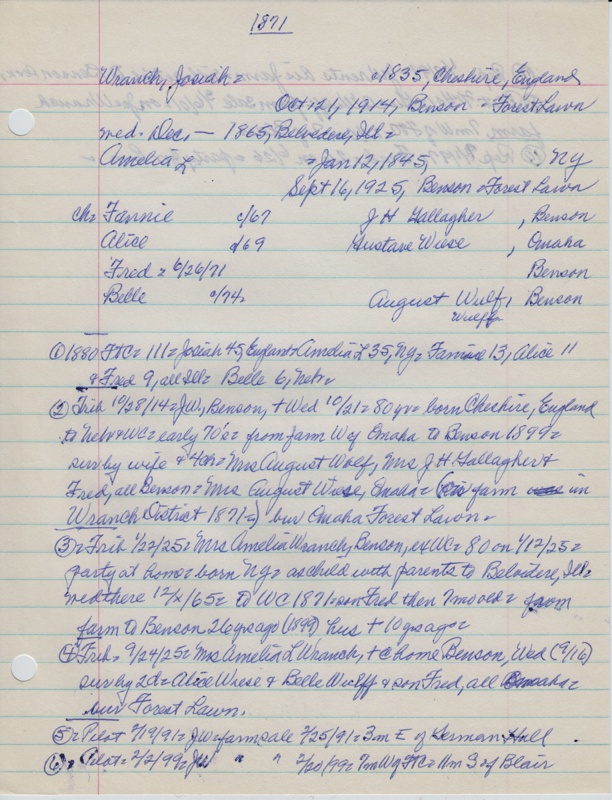 1871
Wranch, Josiah = c1835, Cheshire, England
Oct 21, 1914, Benson = Forest Lawn
wed. Dec, — 1865, Belvedere, Ill =
Amelia L = Jan 12, 1845, NY
Sept 16, 1925, Benson = Forest Lawn
ch = Fannie c/67 J H Gallagher , Benson
Alice c/69 Gustave Wiese , Omaha
Fred = 6/26/71 Benson
Belle c/74 = August Wulf, Benson
Wulff
① 1880 FTC = 111 = Josiah 45, England = Amelia L 35, NY = Fannie 13, Alice 11
& Fred 9, all Ill = Belle 6, Nebr =
② Trib 10/28/14 = JW, Benson, + Wed 10/21 = 80 yr = born Cheshire, England
to Nebr & WC = early 70's = from farm W of Omaha to Benson 1899 =
sur by wife & 4 ch = Mrs August Wolf, Mrs J H Gallagher &
Fred, all Benson = Mrs August Wiese, Omaha = ( farm in
Wranch District 1871 =) bur Omaha Forest Lawn =
③ = Trib 1/22/25 = Mrs Amelia Wranch, Benson, ex WC = 80 on 1/12/25 =
party at home = born NY = as child with parents to Belvidere, Ill =
wed there 12/x/65 = to WC 1871 = son Fred then 2mo old = from
farm to Benson 26 yrs ago (1899) hus + 10 yrs ago =
④ Trib = 9/24/25 = Mrs Amelia L Wranch, + @ home Benson, Wed (9/16)
sur by 2d = Alice Wiese & Belle Wulff & son Fred, all Omaha =
bur Forest Lawn.
⑤ = Pilot 2/19/91 = JW = farm sale 2/25/91 = 3m E of Herman Hall
⑥ = Pilot = 2/2/99 = JW " " 2/20/99 = 7m W of FTC = 11m S of Blair